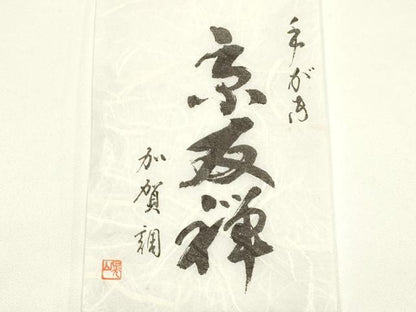 手がき
京友禅
加賀調